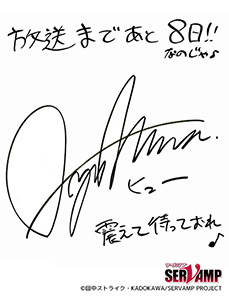 放送まであと8日!!
なのじゃ♪
ヒュー
震えて待っておれ♪
サーヴァンプ
SERVAMP
©田中ストライク・KADOKAWA/SERVAMP PROJECT